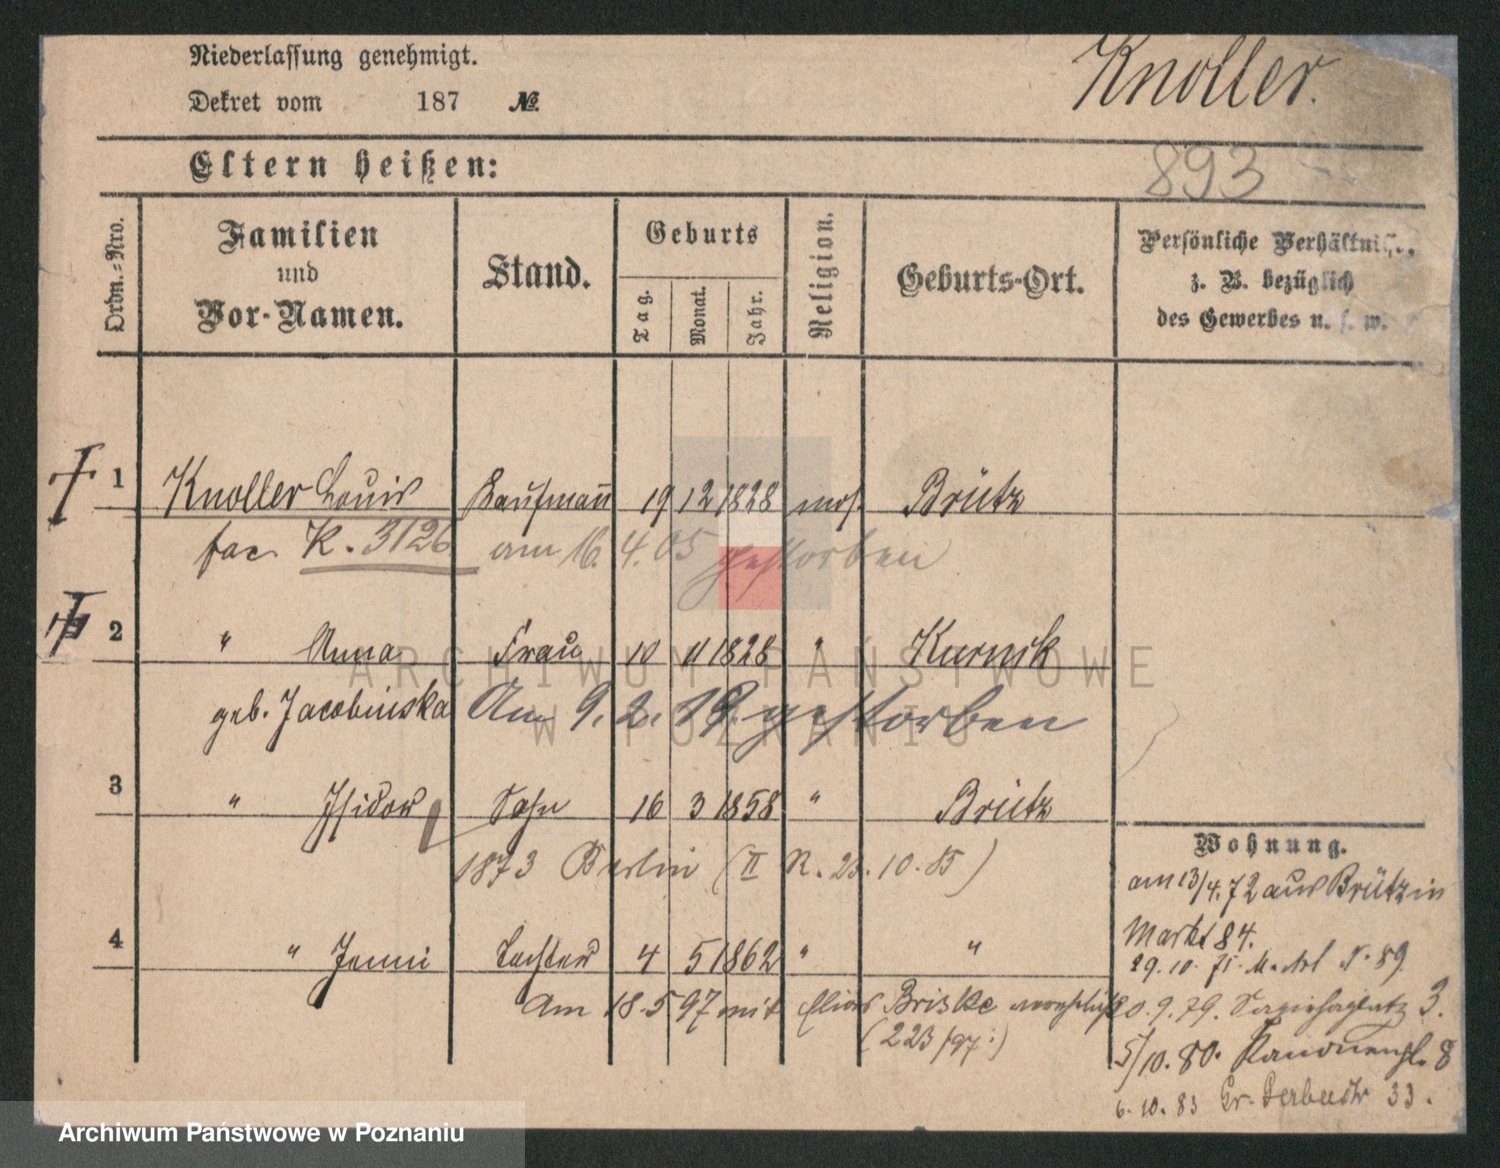 Niederlassung genehmigt.
Knoller.
Dekret vom 187 №.
Eltern heißen:
893
Ordn.=Nro.
Familien
und
Vor-Namen.
Stand.
Geburts
Tag.
Monat.
Jahr.
Religion.
Geburts-Ort.
Persönliche Verhältnisse,
z. B. bezüglich
des Gewerbes u. s. w.
1 Knoller Louis Kaufmann 19 12 1828 mos. Brütz
K. 3126 am 16. 4. 05 gestorben
2 " Anna Frau 10 11 1828 " Kurnik
geb. Jacobinska Am 9. 2. gestorben
3 " Isidor Sohn 16 3 1858 " Brütz
1873 Berlin (II R. 23. 10. 85)
4 " Jenni Tochter 4 5 1862 " "
Am 18. 5 97 mit Elias Briske
(223/97.)
Wohnung.
am 13/4. 72 aus Brütz in
Markt 84.
29. 10. 75. 89
9. 79. Sapiehaplatz 3.
5/10. 80. Kanonenpl. 8
6. 10. 83 Gr. Gerberstr 33.
ARCHIWUM PAŃSTWOWE
W POZNANIU
Archiwum Państwowe w Poznaniu